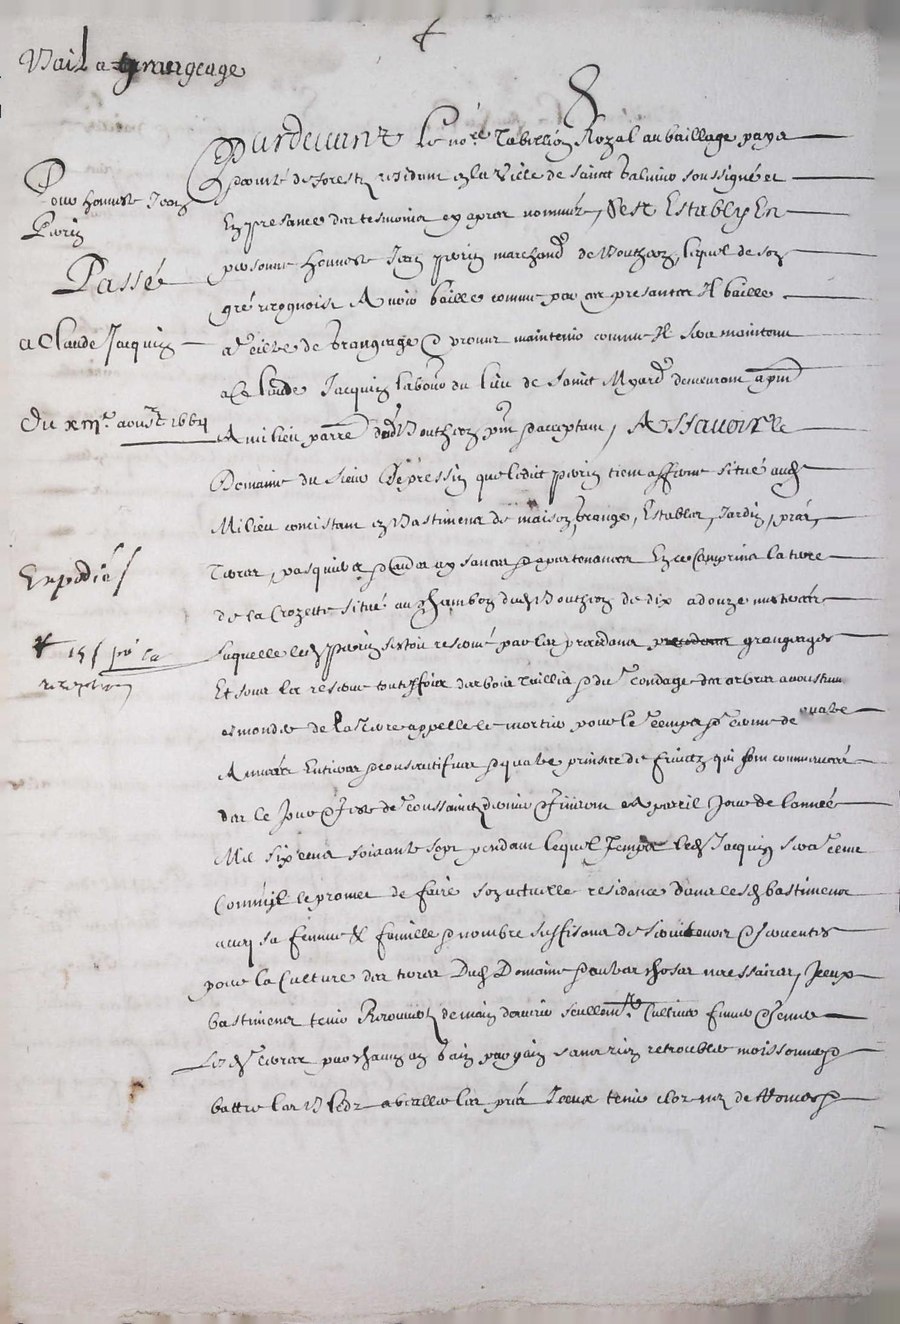 Bail a grangeage
Pour honneste Jean
Perin
Passé
a Claude Jacquin
Du xiiie aoust 1664
Expedié
15 s pr la
reception
Pardevant le nore Tabellion Royal au bailliage pays
& comté de Forestz residant en la Ville de Sainct soussigné et
En presance des tesmoins cy apres nommés, S'est Estably En
personne honneste Jean Perin marchand de Boutheon, lequel de son
gré recognoist Avoir baillé comme par ces presantes Il baille
a tiltre de Grangeage & promet maintenir comme Il sera maintenu
a Claude Jacquin labour du lieu de Sainct demeurant a pnt
A milieu parre dud Boutheon pnt & acceptant, Assavoir le
Domaine du Sieur que ledict Perin tient afferme situé aud
Milieu concistant en Bastiments de maison, grange, Estables, Jardin, prés,
Terres, pasquiers & aysances & apartenances En ce Comprins la terre
de la Crozette situé au Chambon dud Boutheon de dix a douze
laquelle led Perin s'estoit reservé par les precedans grangeages
Et soubs la reserve touteffois des bois & du tondage des arbres accoustumé
esmonder de la Terre appellé le mortier pour le temps & terme de quatre
Années Entieres & consecutifves & quatre prinses de fruictz qui sont commancées
dez le Jour & feste de Toussainctz dernier & finiront a pareil Jour de l'année
Mil six cens soixante sept pendant lequel Temps led Jacquin sera tenu
Comm'il le promet de faire son actuelle residance dans lesd bastiments
avec sa femme & famille & nombre suffisant de serviteurs & servantes
pour la Culture des terres dud Domaine & autres choses necessaires, Iceux
bastiments tenir de main d'ouvrier seullemt Cultiver fumer & semer
Lesd terres par chacun an gain par gain sans rien retroubler moissonner &
battre les Bledz les prés Iceux tenir clos nez de &